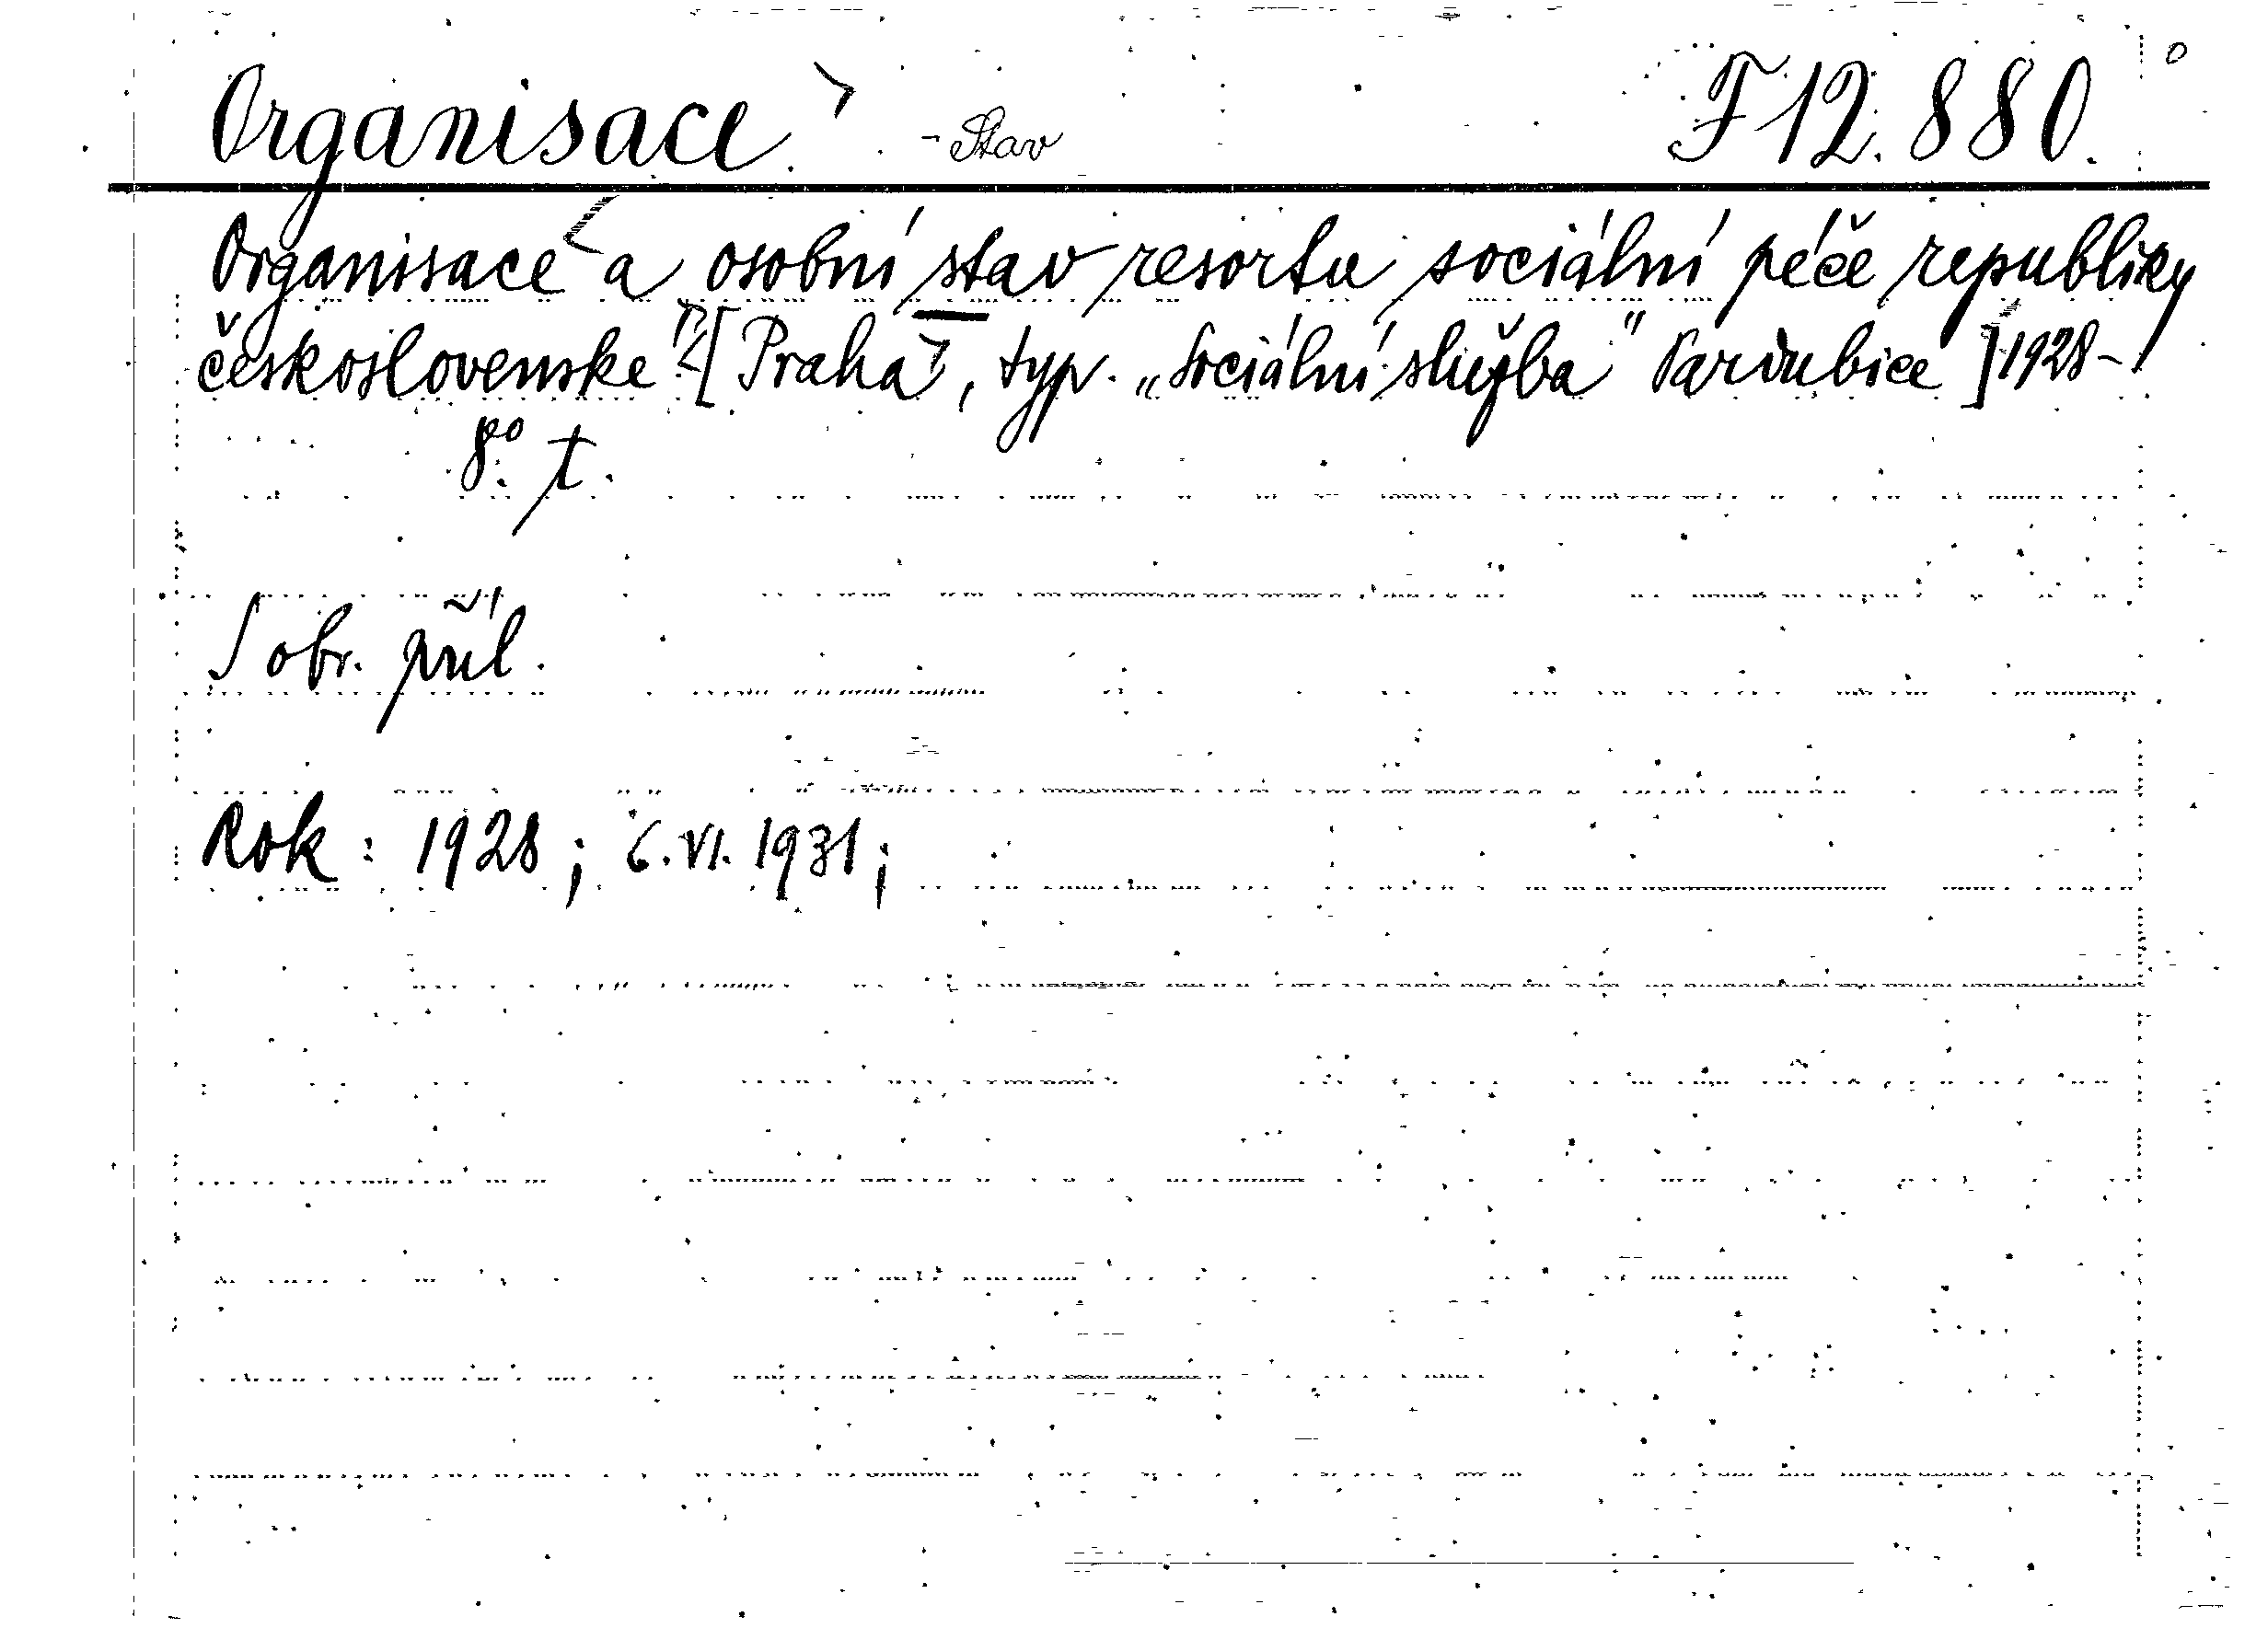 Organisace - Stav F 12.880.
Organisace a osobní stav resortu sociální péče republiky
československé. [Praha, typ. „Sociální služba" Pardubice] 1928-
8°. t.
S obr. příl.
Rok: 1928; 6. VI. 1931;